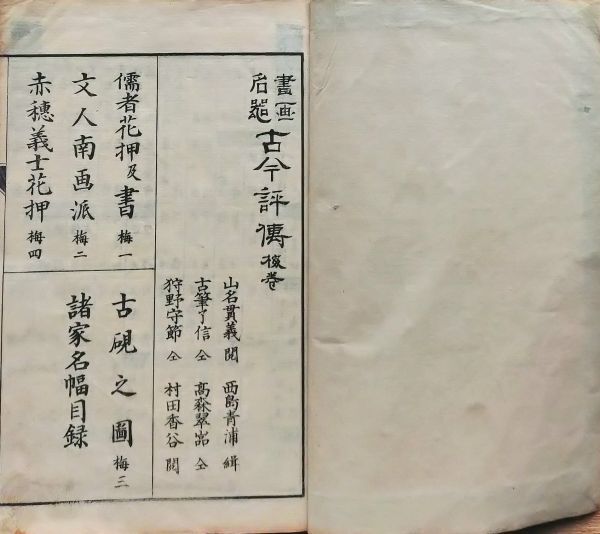 書画名器古今評傳 梅卷
山名貫義 閲 西島青浦 緝
古筆了信 仝 高森翠嵒 仝
狩野守節 仝 村田香谷 閲
儒者花押及書 梅一
文人南画派 梅二
赤穗義士花押 梅四
古硯之圖 梅三
諸家名幅目録